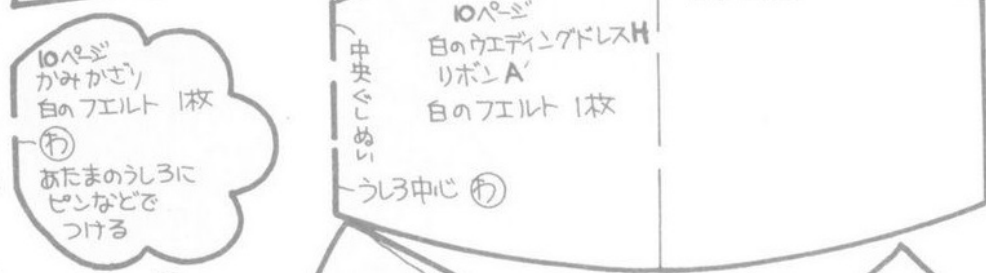 10ページ
かみかざり
白のフエルト 1枚
わ
あたまのうしろに
ピンなどで
つける
10ページ
白のウエディングドレスH
リボンA'
白のフエルト 1枚
中央ぐしぬい
うしろ中心 わ